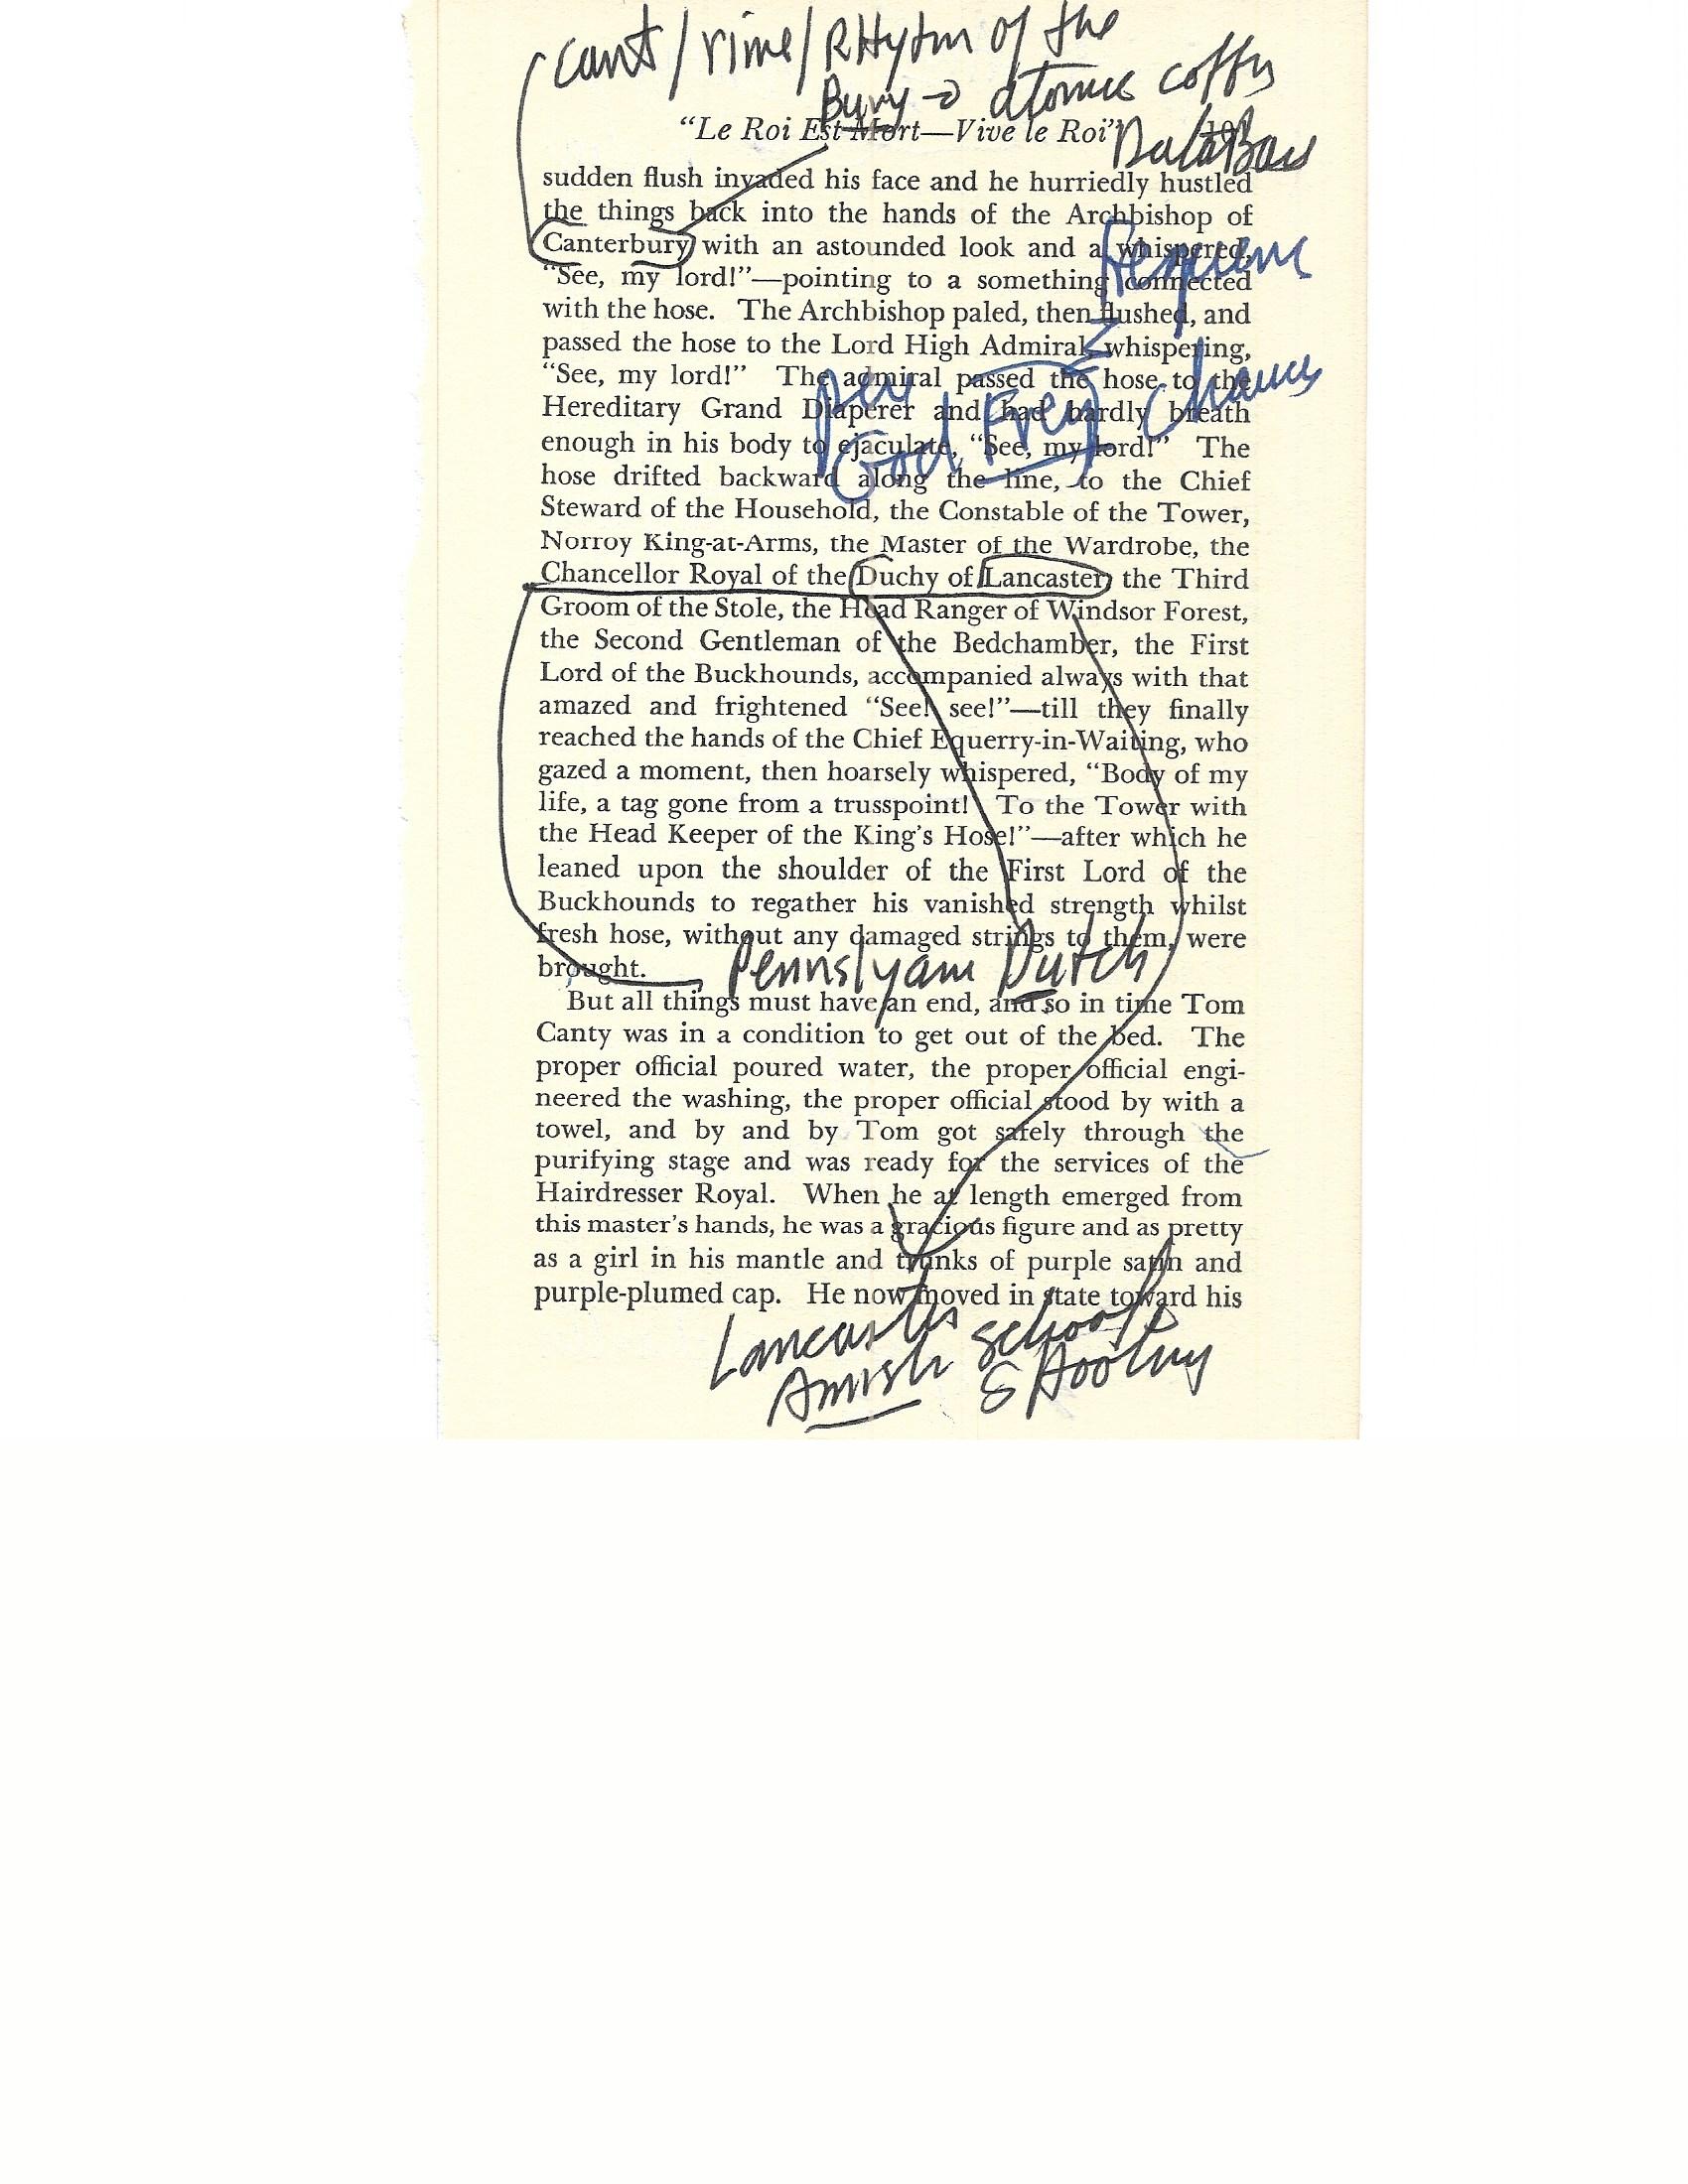 cant/rime/RHytm of the
Bury → atomic coffy
"Le Roi Est Mort—Vive le Roi"
DataBas
sudden flush invaded his face and he hurriedly hustled
the things back into the hands of the Archbishop of
Canterbury with an astounded look and a whispered,
"See, my lord!"—pointing to a something connected
with the hose. The Archbishop paled, then flushed, and
passed the hose to the Lord High Admiral, whispering,
"See, my lord!" The admiral passed the hose to the
Hereditary Grand Diaperer and had hardly breath
enough in his body to ejaculate, "See, my lord!" The
hose drifted backward along the line, to the Chief
Steward of the Household, the Constable of the Tower,
Norroy King-at-Arms, the Master of the Wardrobe, the
Chancellor Royal of the Duchy of Lancaster, the Third
Groom of the Stole, the Head Ranger of Windsor Forest,
the Second Gentleman of the Bedchamber, the First
Lord of the Buckhounds, accompanied always with that
amazed and frightened "See! see!"—till they finally
reached the hands of the Chief Equerry-in-Waiting, who
gazed a moment, then hoarsely whispered, "Body of my
life, a tag gone from a trusspoint! To the Tower with
the Head Keeper of the King's Hose!"—after which he
leaned upon the shoulder of the First Lord of the
Buckhounds to regather his vanished strength whilst
fresh hose, without any damaged strings to them, were
brought.
Pennslyam Dutch
But all things must have an end, and so in time Tom
Canty was in a condition to get out of the bed. The
proper official poured water, the proper official engi-
neered the washing, the proper official stood by with a
towel, and by and by Tom got safely through the
purifying stage and was ready for the services of the
Hairdresser Royal. When he at length emerged from
this master's hands, he was a gracious figure and as pretty
as a girl in his mantle and trunks of purple satin and
purple-plumed cap. He now moved in state toward his
Lancaster school
Amish SHooting
Requiem
per
God Frey